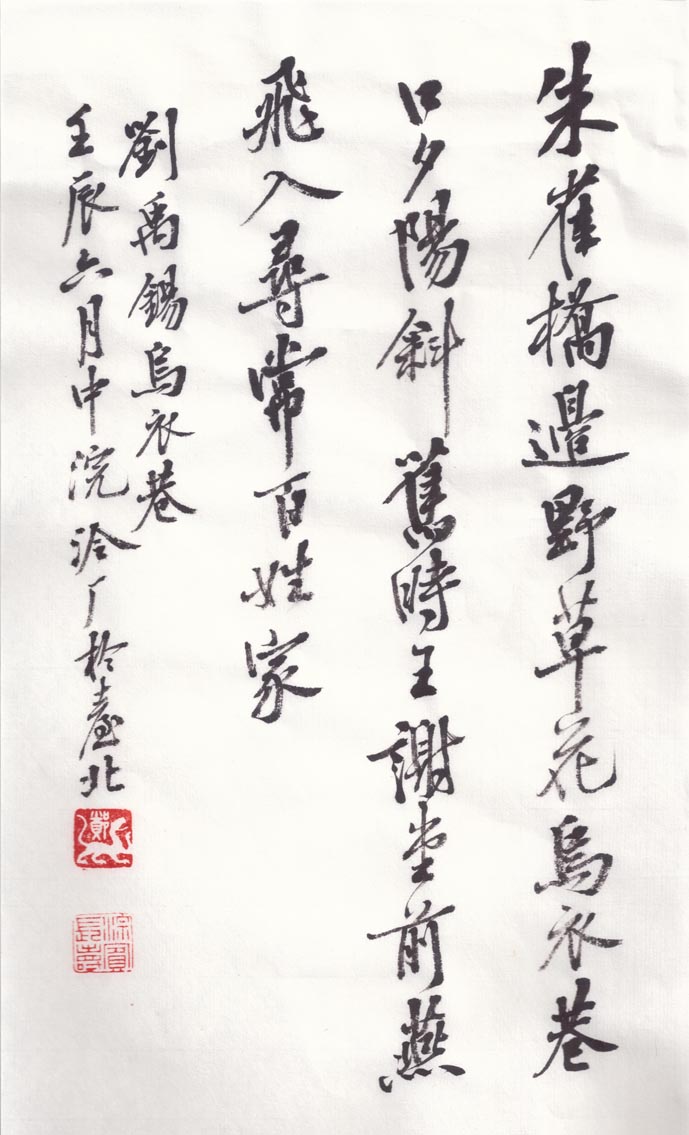 朱雀橋邊野草花烏衣巷
口夕陽斜舊時王謝堂前燕
飛入尋常百姓家
劉禹錫烏衣巷
壬辰六月中浣泠厂於臺北